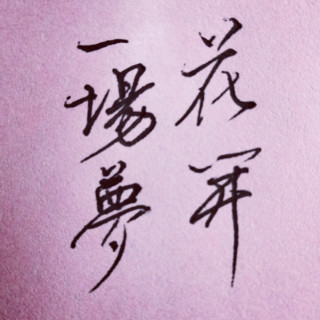 花開
一場夢